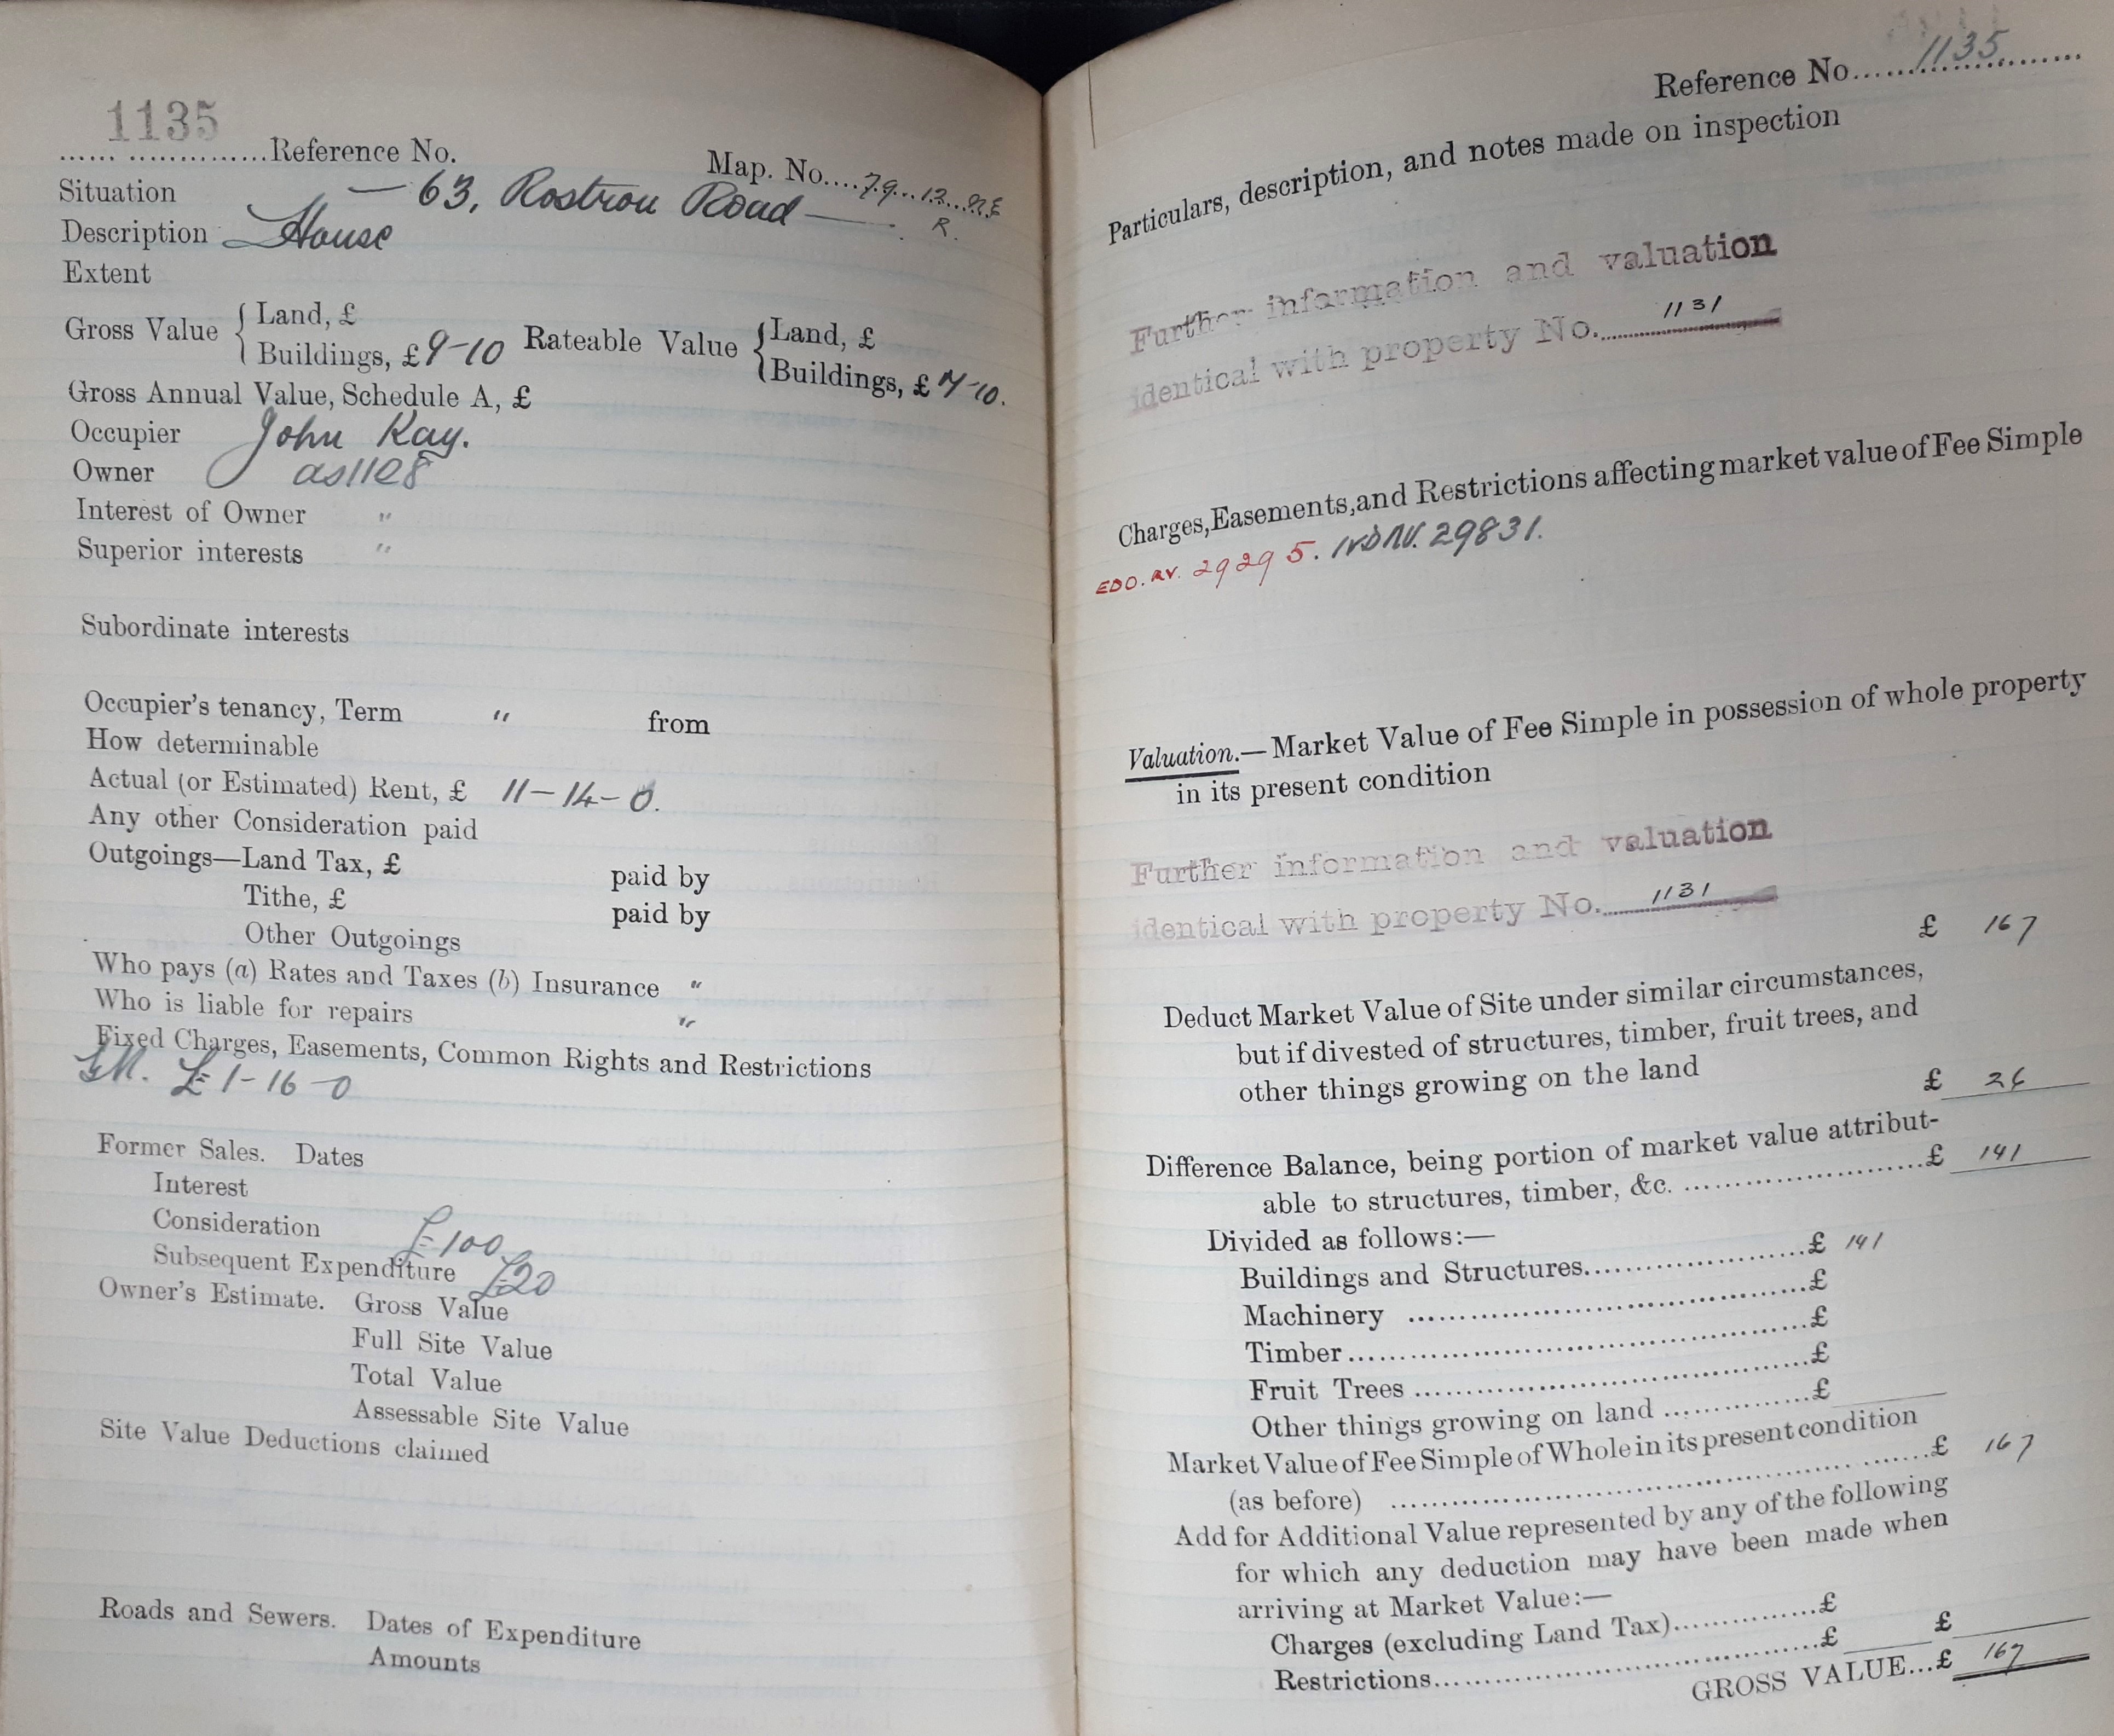 1135
...... ..............Reference No.
Map. No....79...13...N.E
R.
Situation — 63, Rostron Road —
Description House
Extent
Gross Value { Land, £
Buildings, £ 9-10
Rateable Value { Land, £
Buildings, £ 7-10.
Gross Annual Value, Schedule A, £
Occupier John Kay.
Owner as 1128
Interest of Owner "
Superior interests "
Subordinate interests
Occupier's tenancy, Term " from
How determinable
Actual (or Estimated) Rent, £ 11-14-0.
Any other Consideration paid
Outgoings—Land Tax, £ paid by
Tithe, £ paid by
Other Outgoings
Who pays (a) Rates and Taxes (b) Insurance "
Who is liable for repairs "
Fixed Charges, Easements, Common Rights and Restrictions
£1-16-0
Former Sales. Dates
Interest
Consideration £100
Subsequent Expenditure £20
Owner's Estimate. Gross Value
Full Site Value
Total Value
Assessable Site Value
Site Value Deductions claimed
Roads and Sewers. Dates of Expenditure
Amounts
Reference No....1135......
Particulars, description, and notes made on inspection
Further information and valuation
identical with property No. 1131
Charges, Easements, and Restrictions affecting market value of Fee Simple
EDO. RV. 29295. IVD RV. 29831.
Valuation.—Market Value of Fee Simple in possession of whole property
in its present condition
Further information and valuation
identical with property No. 1131
£ 167
Deduct Market Value of Site under similar circumstances,
but if divested of structures, timber, fruit trees, and
other things growing on the land
£ 26
Difference Balance, being portion of market value attribut-
able to structures, timber, &c. ........................£ 141
Divided as follows:—
Buildings and Structures........................£ 141
Machinery ........................£
Timber........................£
Fruit Trees ........................£
Other things growing on land ................£
Market Value of Fee Simple of Whole in its present condition
(as before) ........................£ 167
Add for Additional Value represented by any of the following
for which any deduction may have been made when
arriving at Market Value:—
Charges (excluding Land Tax)...............£
Restrictions........................£ £
GROSS VALUE...£ 167